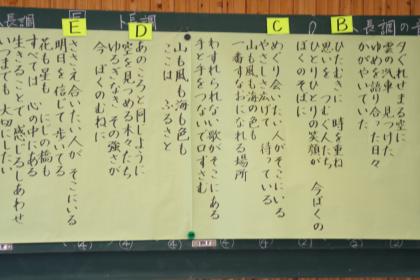 夕ぐれせまる空に
雲の汽車 見つけた
ゆめを語り合った日々
かがやいていた
B
ひたむきに 時を重ね
思いを つむぐ人たち
ひとりひとりの笑顔が 今ぼくの
ぼくのそばに
C
めぐり会いたい人がそこにいる
やさしさ広げて 待っている
山も風も海の色も
一番すなおになれる場所
わすれられない歌がそこにある
手と手をつないで口ずさむ
山も風も海も色も
ここは ふるさと
D
あのころと同じように
空を見つめる木々たち
ゆるぎなき その強さが
今 ぼくのむねに
E
ささえ合いたい人が そこにいる
明日を信じて 歩いてる
花も星も にじの橋も
すべては 心の中にある
生きることで 感じるしあわせ
いつまでも 大切にしたい
ト長調
長調の
(4)
(4)
(4)